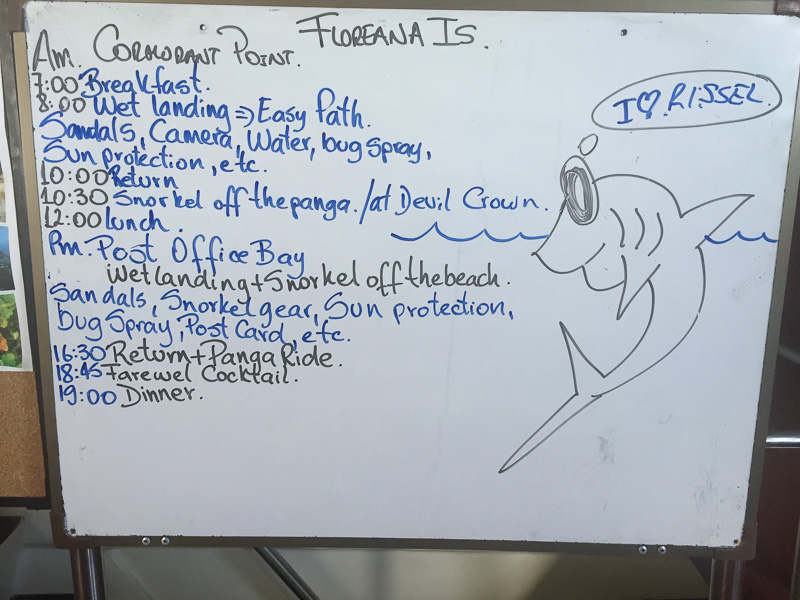 FLOREANA IS.
Am. CORMORANT POINT.
7:00 Breakfast.
8:00 Wet landing => Easy Path.
Sandals, Camera, Water, bug Spray,
Sun protection, etc.
10:00 Return
10:30 Snorkel off the panga. / at Devil Crown.
12:00 lunch.
Pm. Post Office Bay
Wet landing + Snorkel off the beach.
Sandals, Snorkel gear, Sun protection,
bug Spray, Post Card, etc.
16:30 Return + Panga Ride.
18:45 Farewel Cocktail.
19:00 Dinner.
I ♡ RISSEL.